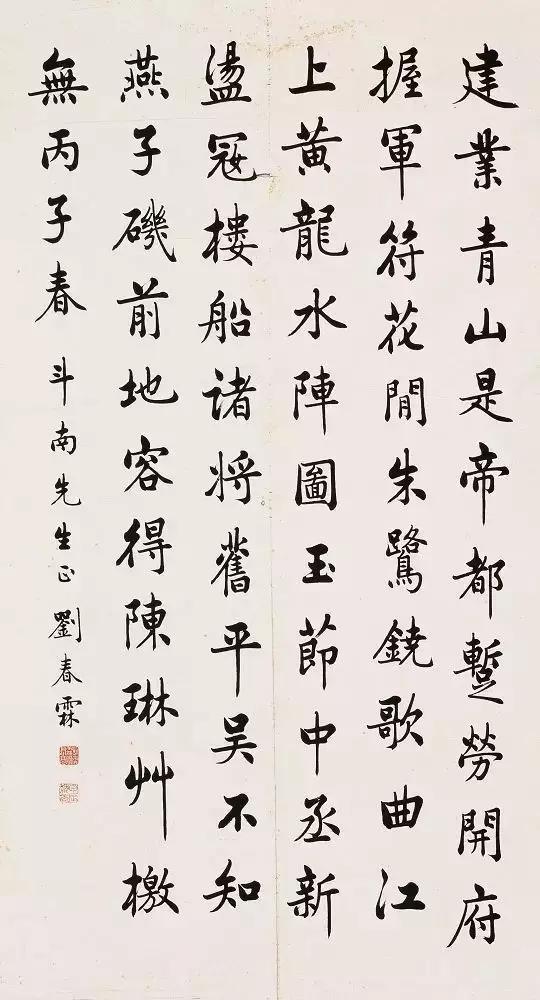 建業青山是帝都蹔勞開府
握軍符花間朱鷺鐃歌曲江
上黃龍水陣圖玉節中丞新
盪寇樓船諸將舊平吳不知
燕子磯前地容得陳琳艸檄
無丙子春斗南先生正劉春霖